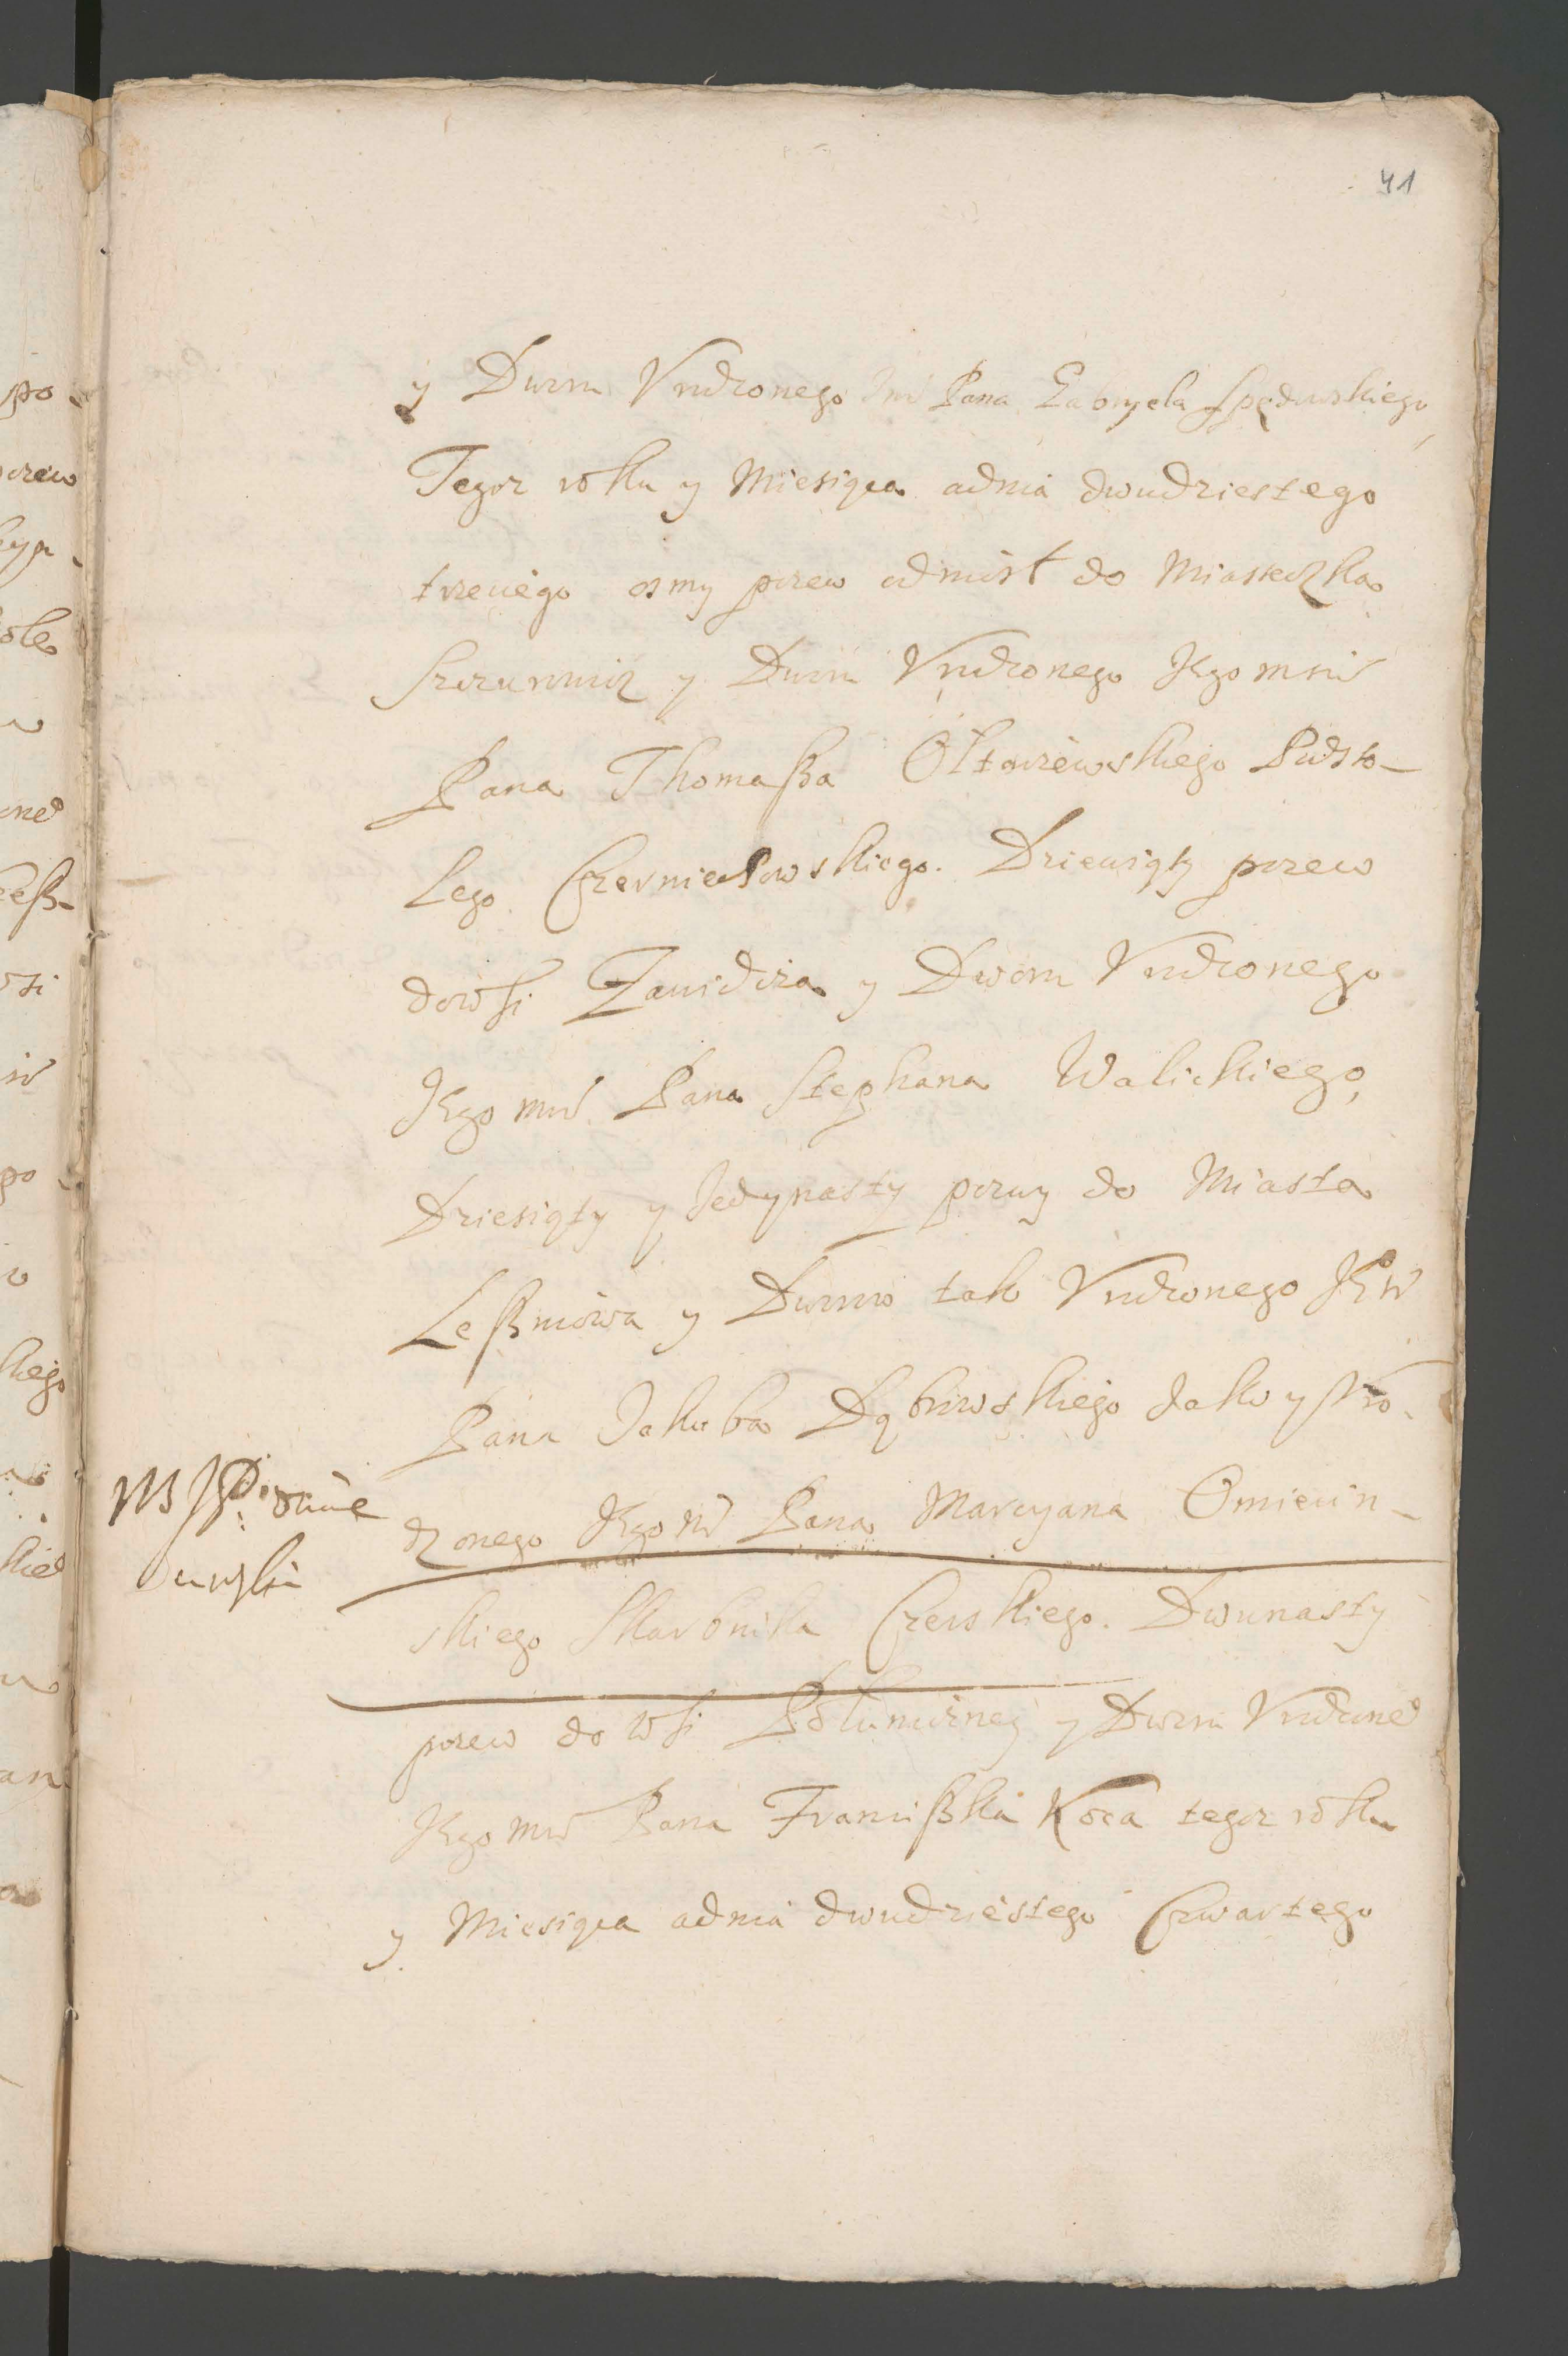 41
y Dworu Vrodzonego Jm Pana Gabryela Spędowskiego,
Tegoz roku y Miesiąca a dnia dwudziestego
trzeciego osmy pozew odniosł do Miasteczka
y Dworu Vrodzonego Jego msci
Pana Thomaßa Ołtarzewskiego Podsto-
lego Czerniechowskiego. Dziewiąty pozew
do wsi Zawidza y Dworu Vrodzonego
Jego mci Pana Stephana Walickiego,
Dziesiąty y Jedynasty pozwy do Miasta
Leßniowa y Dworow tak Vrodzonego
Pana Jakuba Dąbrowskiego Jako y Vro-
dzonego Jego m Pana Marcyana Omiecin-
skiego Skarbnika Czerskiego. Dwunasty
pozew do wsi y Dworu Vrodzone
Jego mci Pana Franciszka Koca tegoz roku
y Miesiąca a dnia dwudziestego Czwartego